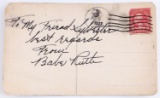 To My Friend
best regards
From
Babe Ruth